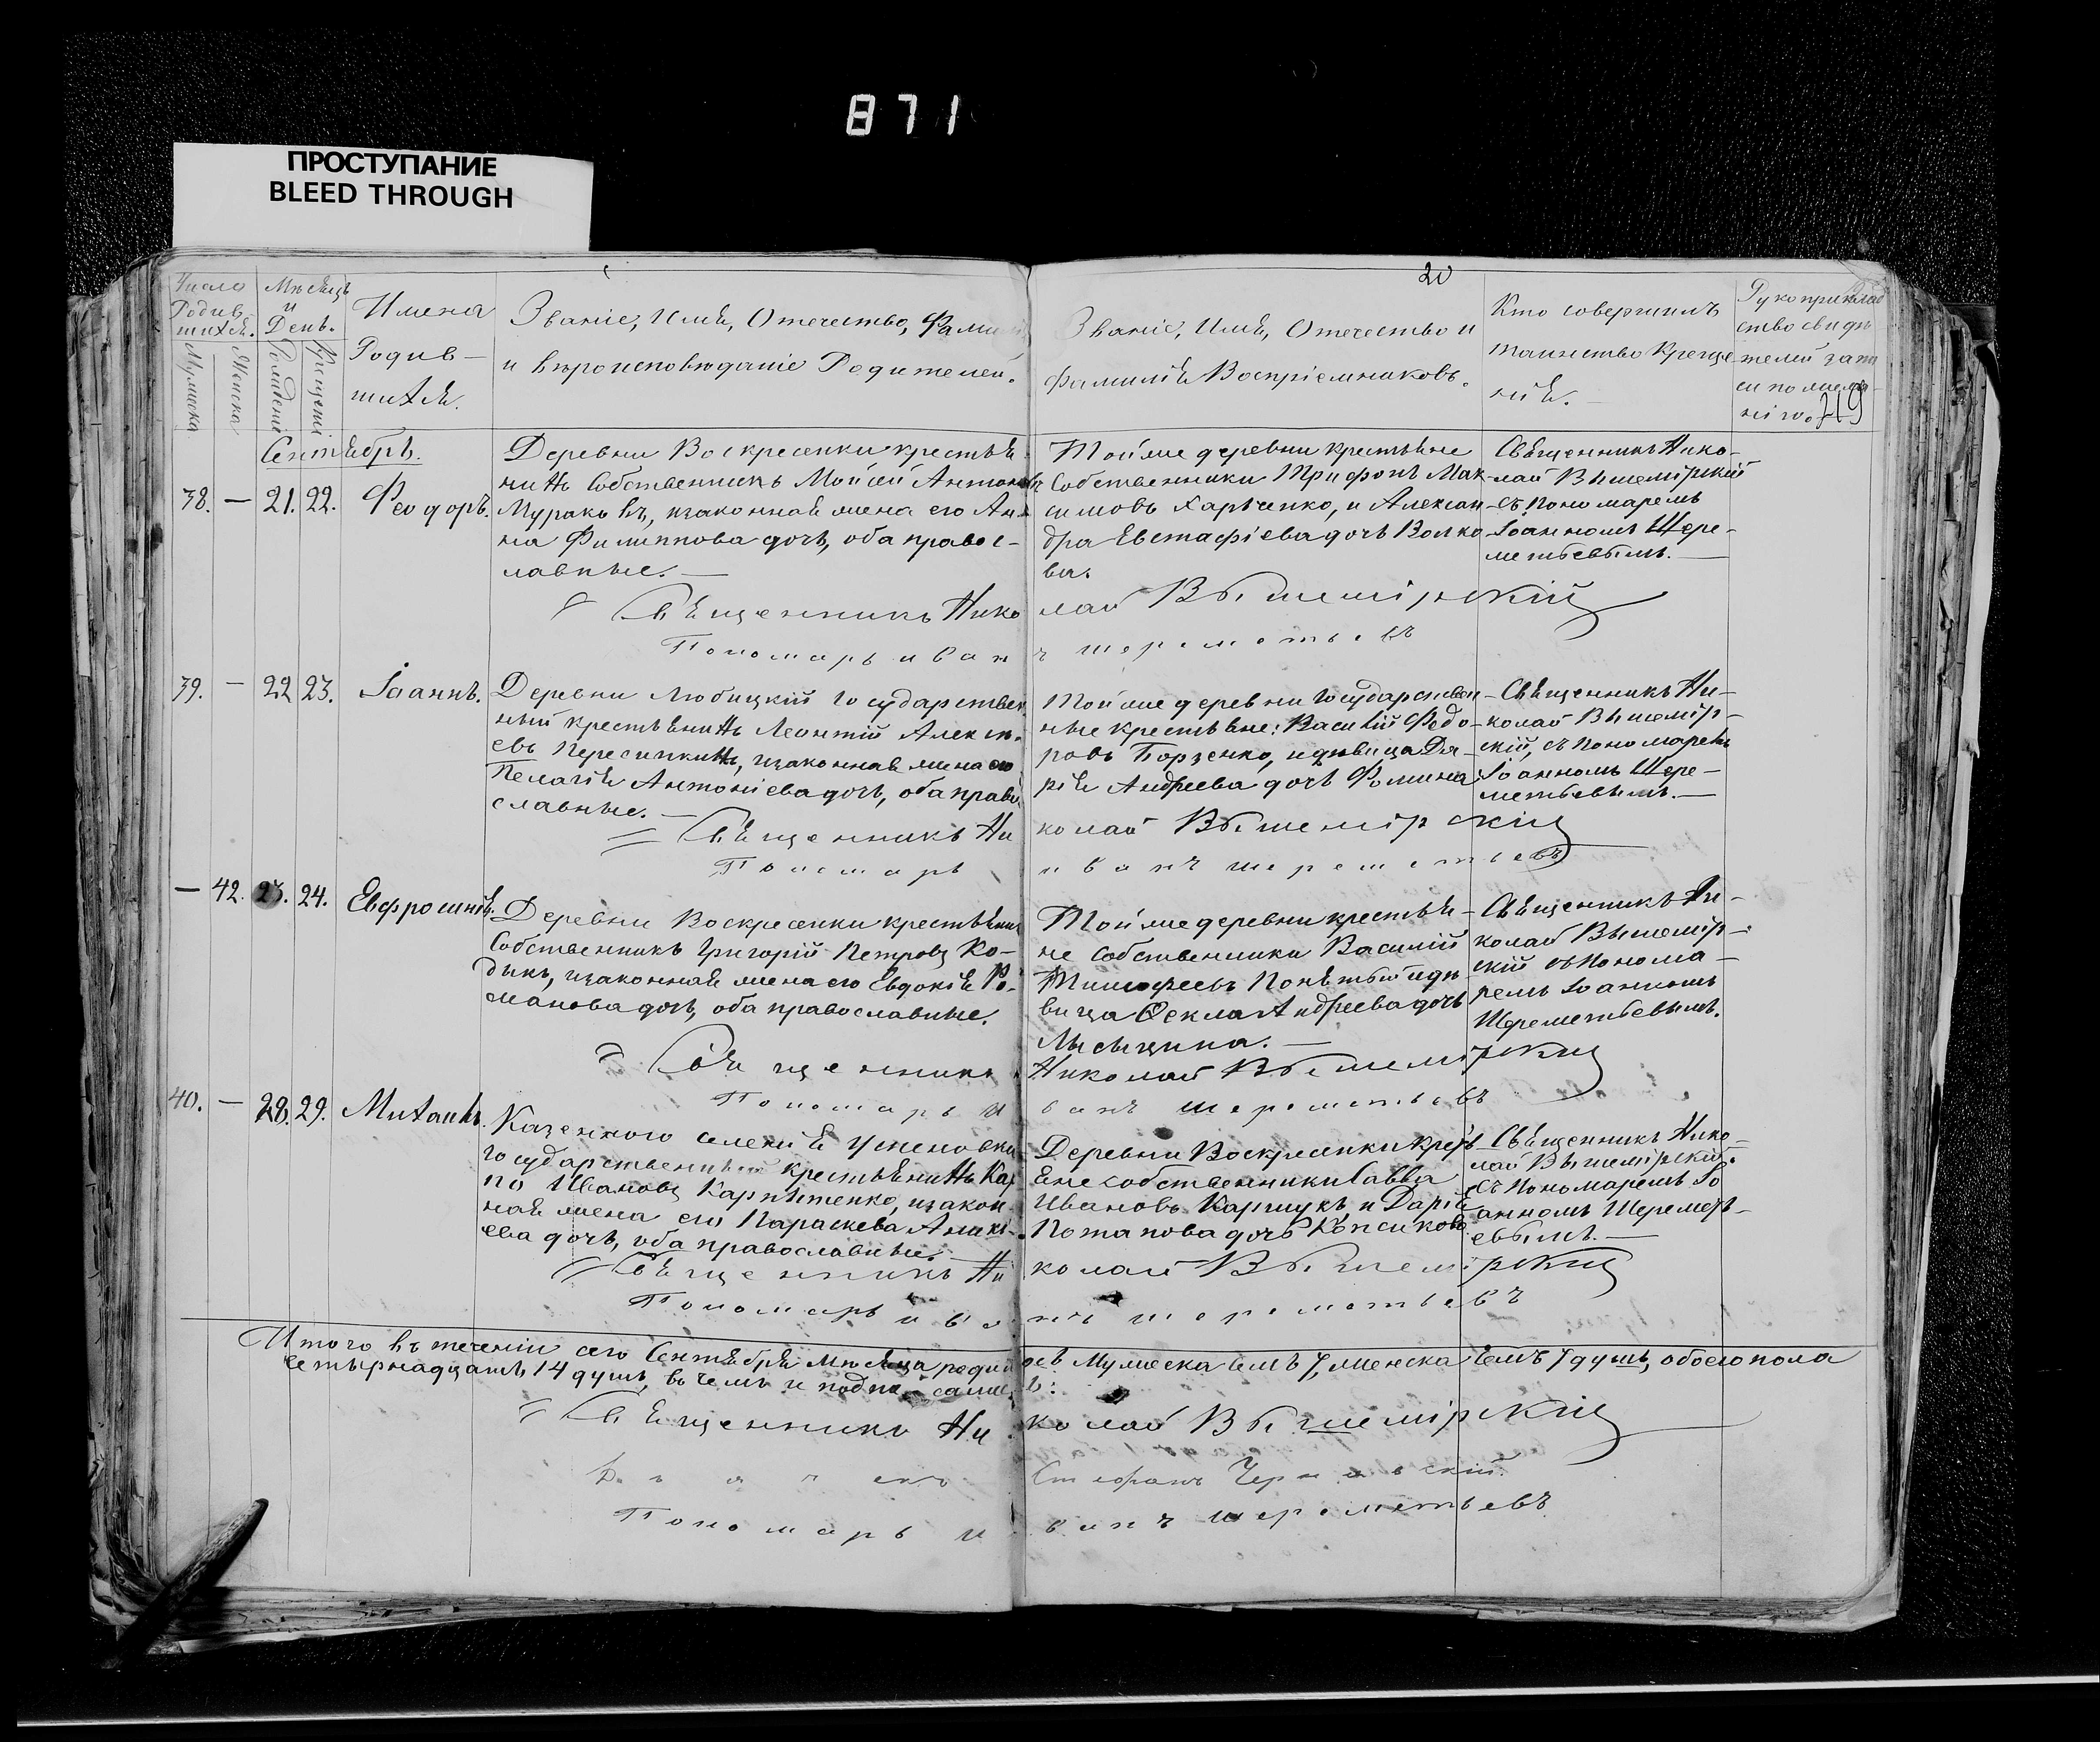 871
ПРОСТУПАНИЕ
BLEED THROUGH
20
219
Число Родив-шихся.
Мужеска
Женска
Мѣсяцъ и День.
Рожденія
Крещенія
Имена
Родив-
шихся.
Званіе, Имя, Отечество, Фамилія
и вѣроисповѣданіе Родителей.
Званіе, Имя, Отечество и
фамилія Воспріемниковъ.
Кто совершилъ
таинство Креще-
нія.
Рукоприклад
ство свидѣ
телей запи
си по жела-
нію.
Сентябрь.
38. — 21. 22. Феодоръ.
Деревни Воскресенки крестья-
нинъ Собственникъ Мойсей Антоновъ
Мураковъ, изаконная жена его Ан-
на Филиппова дочь, оба правос-
лавные. —
Тойже деревни крестьяне
Собственники Трифонъ Мак-
симовъ Харченко, и Алексан-
дра Евстафіева дочь Волко-
ва.
Священникъ Нико-
лай Вышемірскій
съ Пономаремъ
Іоанномъ Шере-
метьевымъ. —
Священникъ Николай Вышемірскій
Пономарь иванъ шереметьевъ
39. — 22 23. Іоаннъ.
Деревни Любицкій Государствен
ный крестьянинъ Леонтій Алексѣ-
евъ Пересипкинъ, изаконная жена его
Пелагія Антоніева дочь, оба право
славные. —
Тойже деревни Государствен-
ные крестьяне: Василій Федо-
ровъ Борзенко, и дѣвица Да-
рія Андреева дочь Фомина
Священникъ Ни-
колай Вышемір-
скій, съ пономаремъ
Іоанномъ Шере-
метьевымъ. —
Священникъ Николай Вышемірскій
Пономарь иванъ шереметьевъ
— 42. 23. 24. Евфросинія.
Деревни Воскресенки крестьянинъ
Собственникъ Григорій Петровъ Ко-
дынъ, изаконная жена его Евдокія Ро-
манова дочь, оба православные.
Тойже деревни крестья-
не Собственники Василій
Тимофеевъ и дѣ-
вица Ѳекла Андреева дочь
Лысыцина. —
Священникъ Ни-
колай Вышемір-
скій съ Понома-
ремъ Іоанномъ
Шереметьевымъ.
Священникъ Николай Вышемірскій
Пономарь иванъ шереметьевъ
40. — 28. 29. Михаилъ.
Казенного селенія Успеновки
государственный крестьянинъ Кар
по Ивановъ Карпѣтенко, изакон-
ная жена его Параскева
ева дочь, оба православные. —
Деревни Воскресенки крест
яне собственники Савва
Ивановъ Каршукъ, и Дарія
Потапова дочь
Священникъ Нико-
лай Вышемірскій
съ Пономаремъ Іо
анномъ Шеремет-
евымъ. —
Священникъ Николай Вышемірскій
Пономарь иванъ шереметьевъ
Итого въ теченіи сего Сентября Мѣсяца родилось Мужеска семъ 7, женска семъ 7 душъ, обоего пола
четырнадцать 14 душъ, въ чемъ и подписались:
Священникъ Николай Вышемірскій
Дьячекъ Стефанъ
Пономарь иванъ шереметьевъ